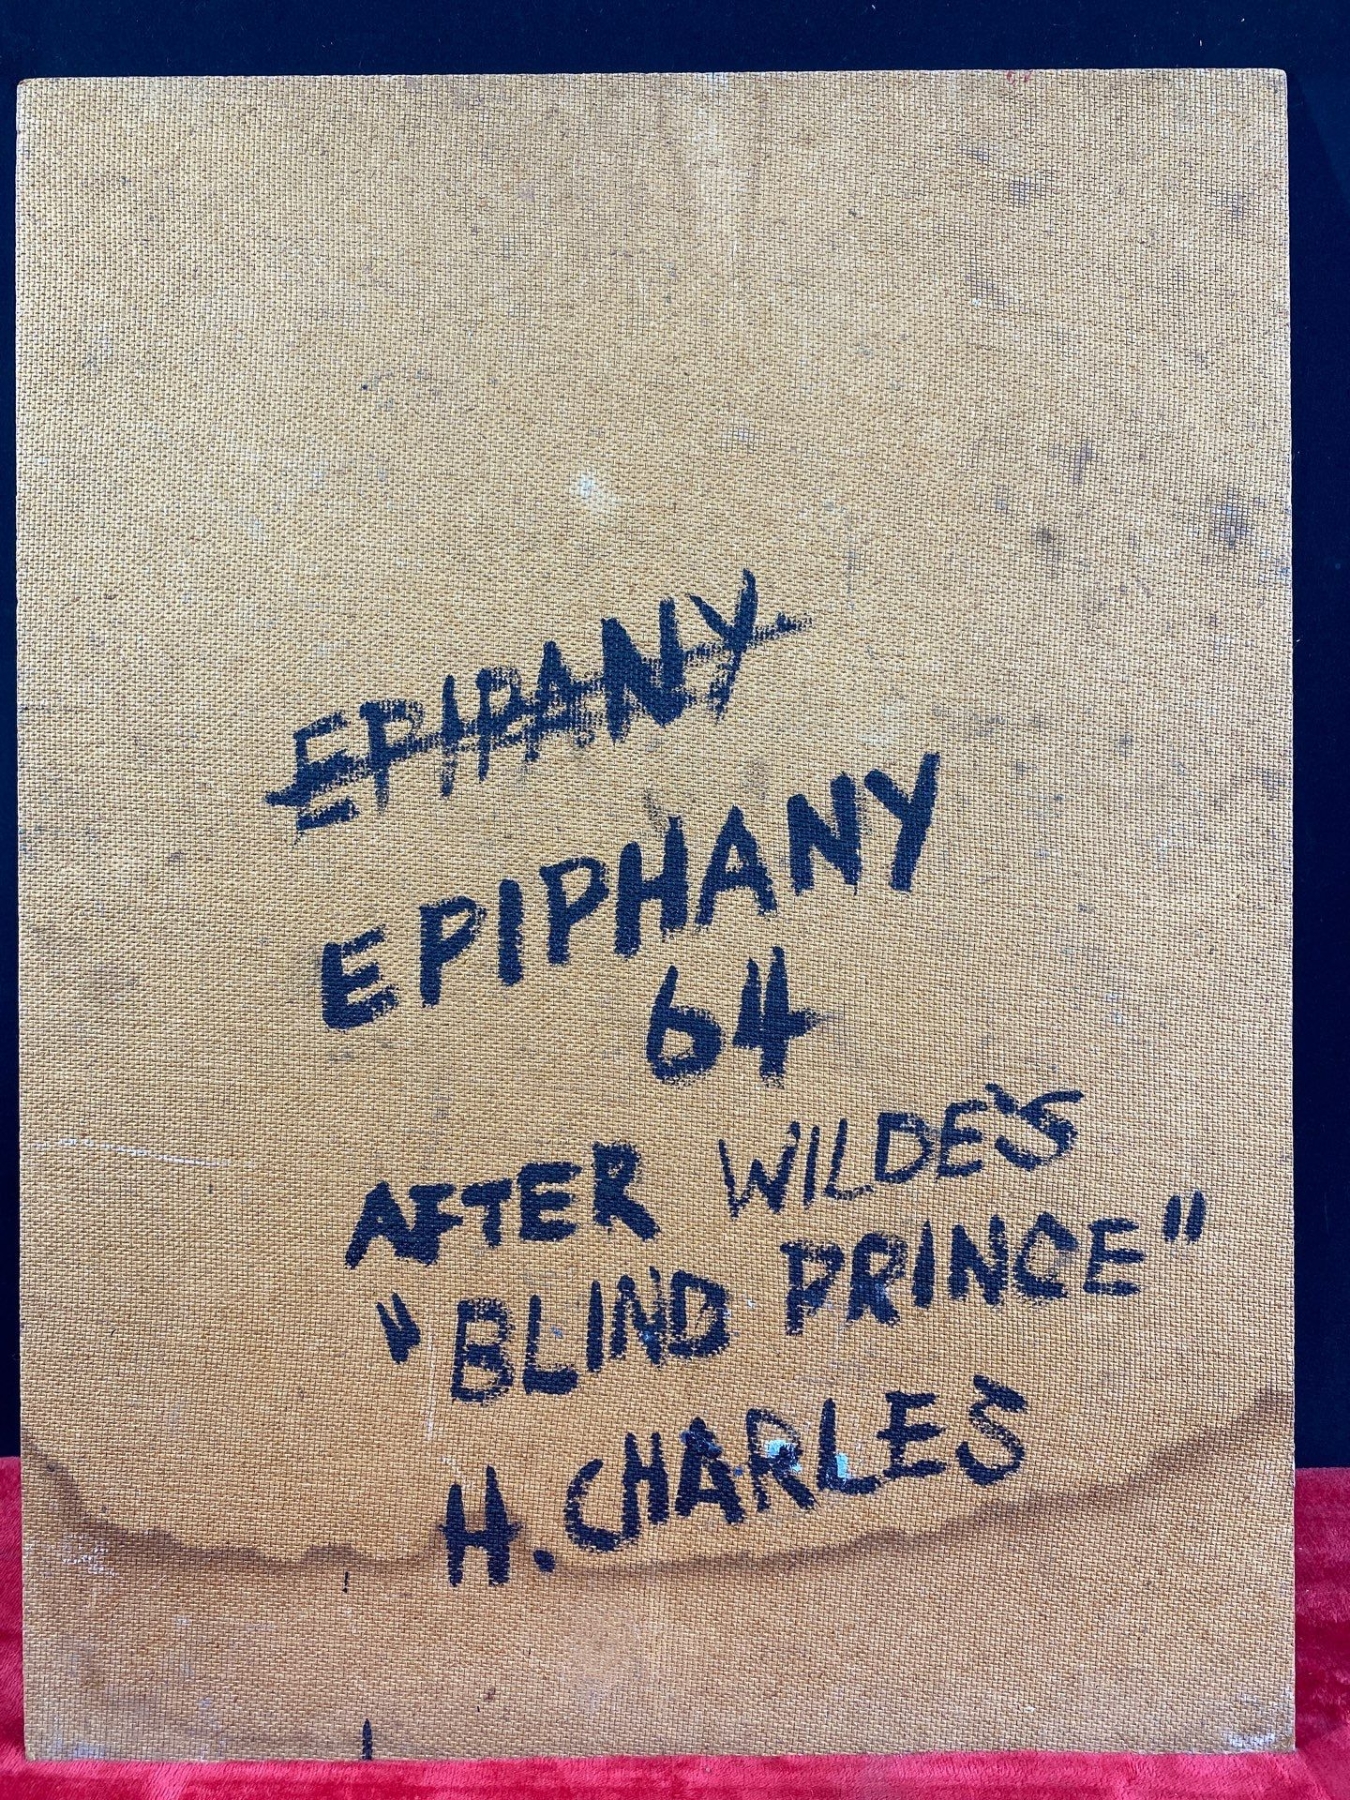 EPIPANY
EPIPHANY
64
AFTER WILDE'S
"BLIND PRINCE"
H. CHARLES